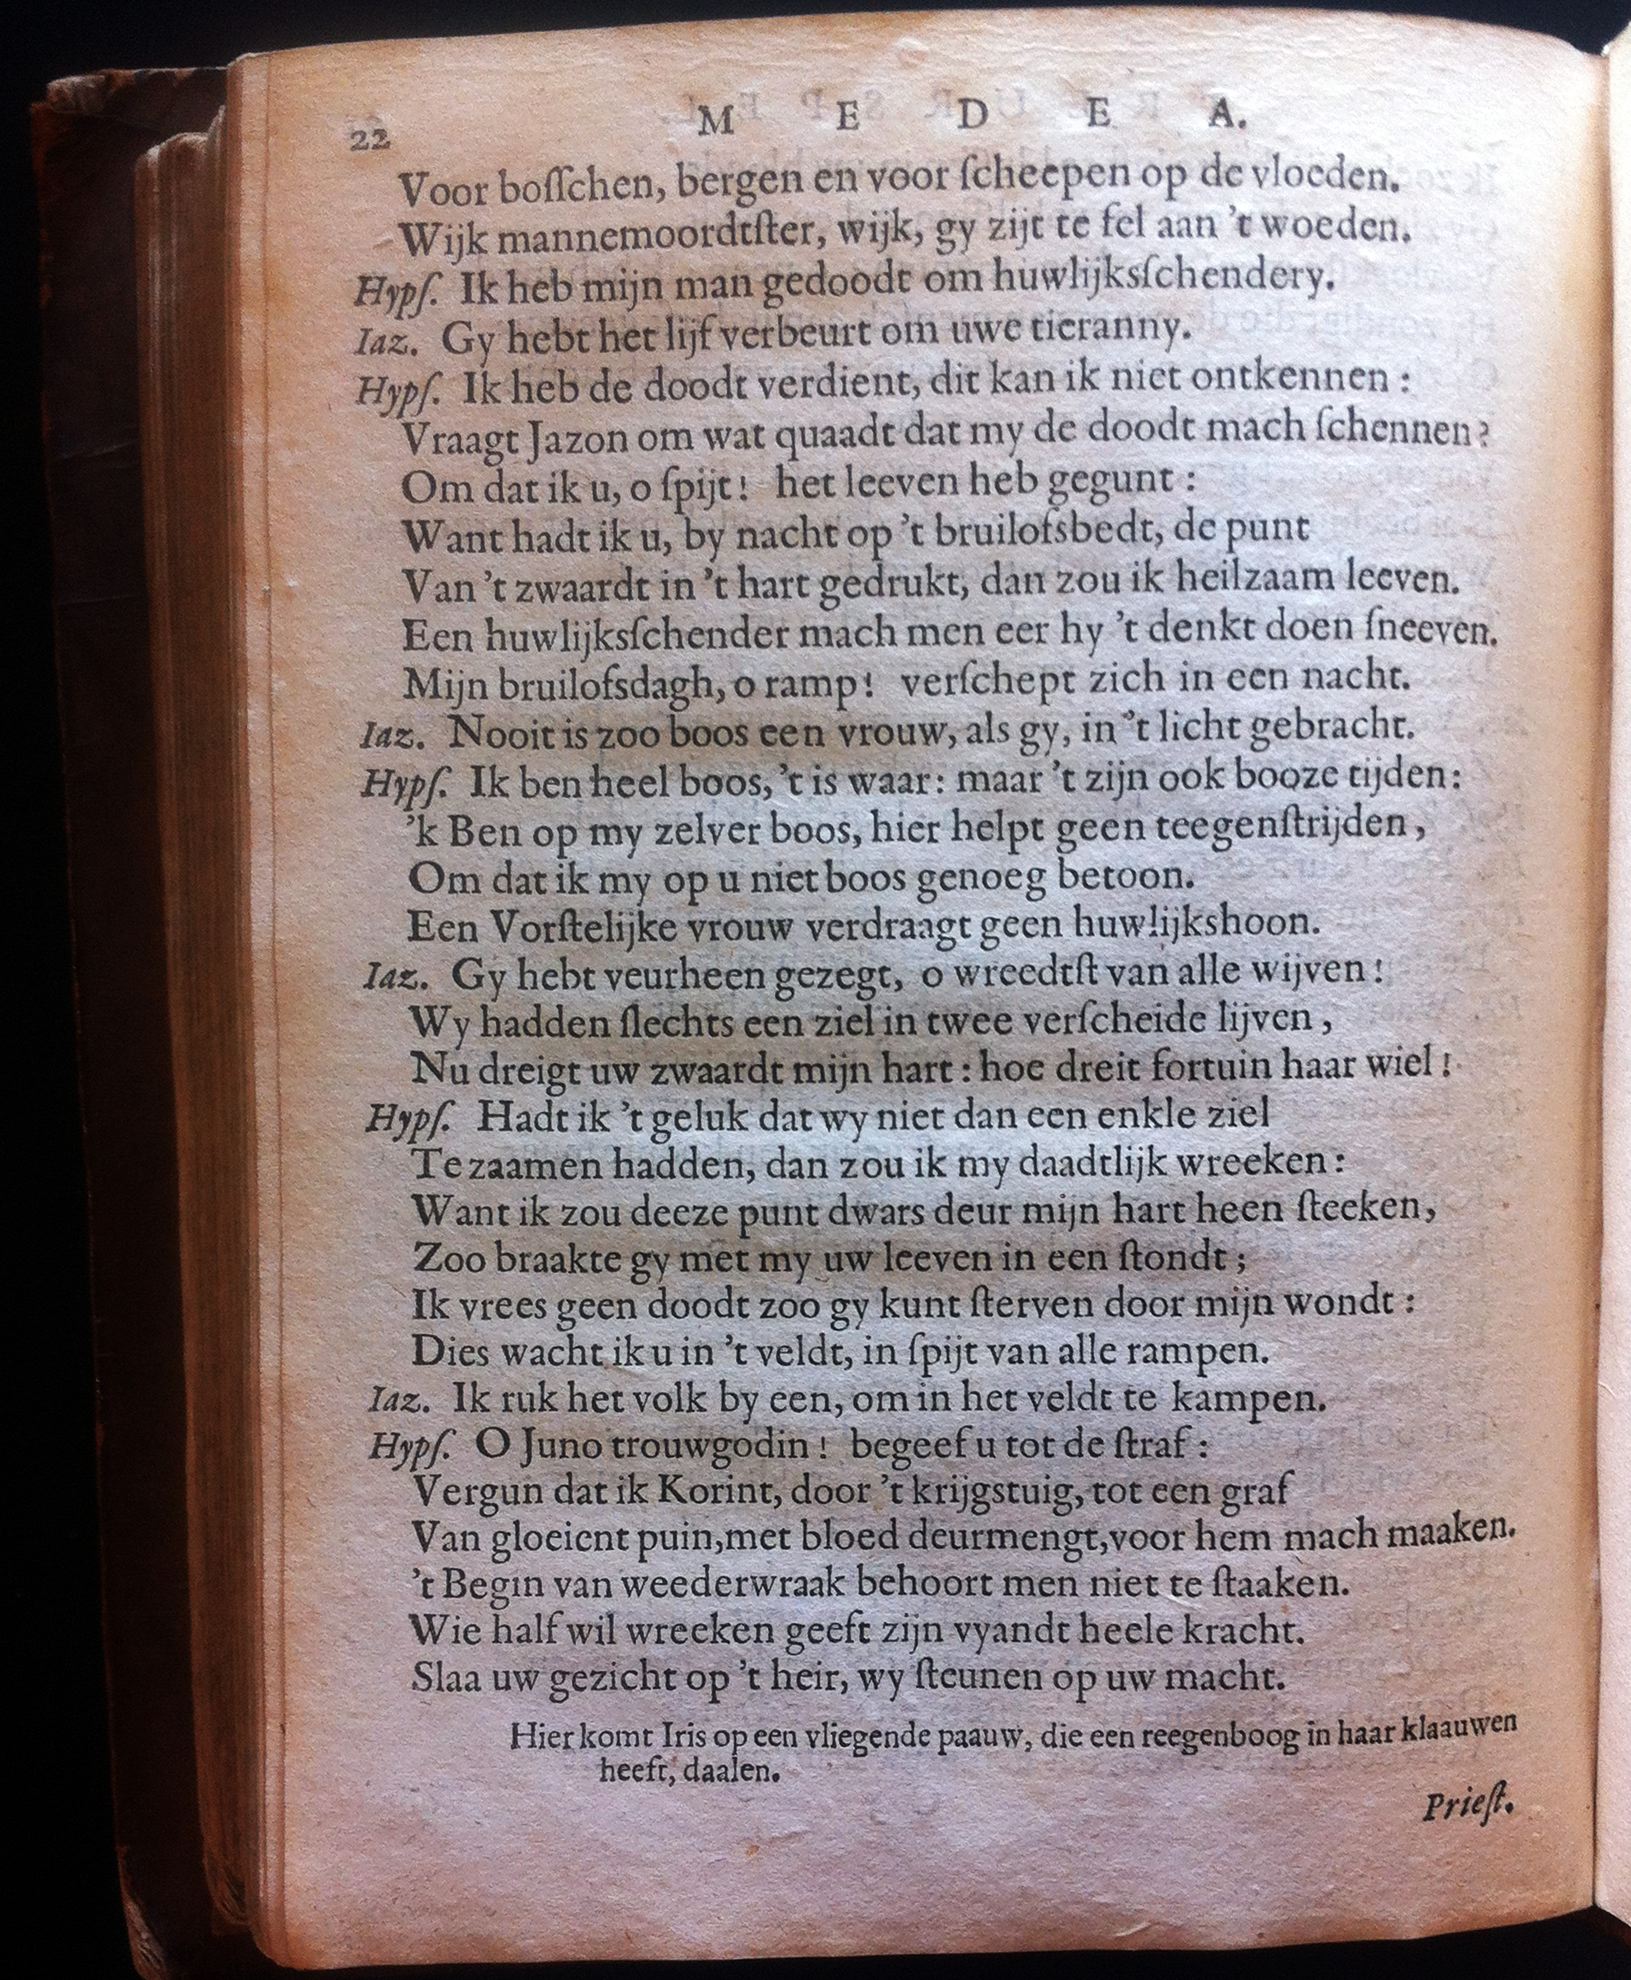 22 M E D E A.
Voor bosſchen, bergen en voor ſcheepen op de vloeden.
Wijk mannemoordtſter, wijk, gy zijt te fel aan 't woeden.
Hypſ. Ik heb mijn man gedoodt om huwlijksſchendery.
Iaz. Gy hebt het lijf verbeurt om uwe tieranny.
Hypſ. Ik heb de doodt verdient, dit kan ik niet ontkennen:
Vraagt Jazon om wat quaadt dat my de doodt mach ſchennen?
Om dat ik u, o ſpijt! het leeven heb gegunt:
Want hadt ik u, by nacht op 't bruilofsbedt, de punt
Van 't zwaardt in 't hart gedrukt, dan zou ik heilzaam leeven.
Een huwlijksſchender mach men eer hy 't denkt doen ſneeven.
Mijn bruilofsdagh, o ramp! verſchept zich in een nacht.
Iaz. Nooit is zoo boos een vrouw, als gy, in 't licht gebracht.
Hypſ. Ik ben heel boos, 't is waar: maar 't zijn ook booze tijden:
'k Ben op my zelver boos, hier helpt geen teegenſtrijden,
Om dat ik my op u niet boos genoeg betoon.
Een Vorſtelijke vrouw verdraagt geen huwlijkshoon.
Iaz. Gy hebt veurheen gezegt, o wreedtſt van alle wijven!
Wy hadden ſlechts een ziel in twee verſcheide lijven,
Nu dreigt uw zwaardt mijn hart: hoe dreit fortuin haar wiel!
Hypſ. Hadt ik 't geluk dat wy niet dan een enkle ziel
Te zaamen hadden, dan zou ik my daadtlijk wreeken:
Want ik zou deeze punt dwars deur mijn hart heen ſteeken,
Zoo braakte gy met my uw leeven in een ſtondt;
Ik vrees geen doodt zoo gy kunt ſterven door mijn wondt:
Dies wacht ik u in 't veldt, in ſpijt van alle rampen.
Iaz. Ik ruk het volk by een, om in het veldt te kampen.
Hypſ. O Juno trouwgodin! begeef u tot de ſtraf:
Vergun dat ik Korint, door 't krijgstuig, tot een graf
Van gloeient puin, met bloed deurmengt, voor hem mach maaken.
't Begin van weederwraak behoort men niet te ſtaaken.
Wie half wil wreeken geeft zijn vyandt heele kracht.
Slaa uw gezicht op 't heir, wy ſteunen op uw macht.
Hier komt Iris op een vliegende paauw, die een reegenboog in haar klaauwen
heeft, daalen.
Prieſt.